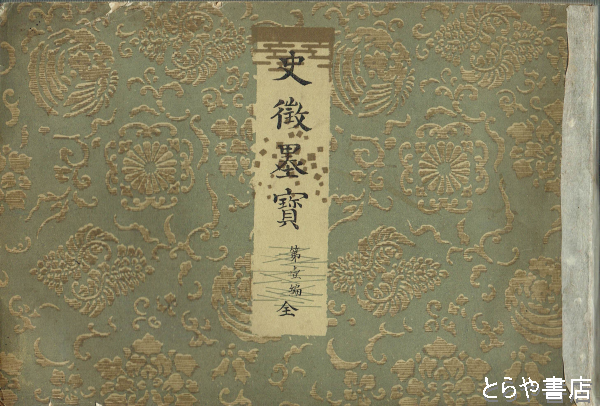 史徴墨寶
第壹編
全
とらや書店